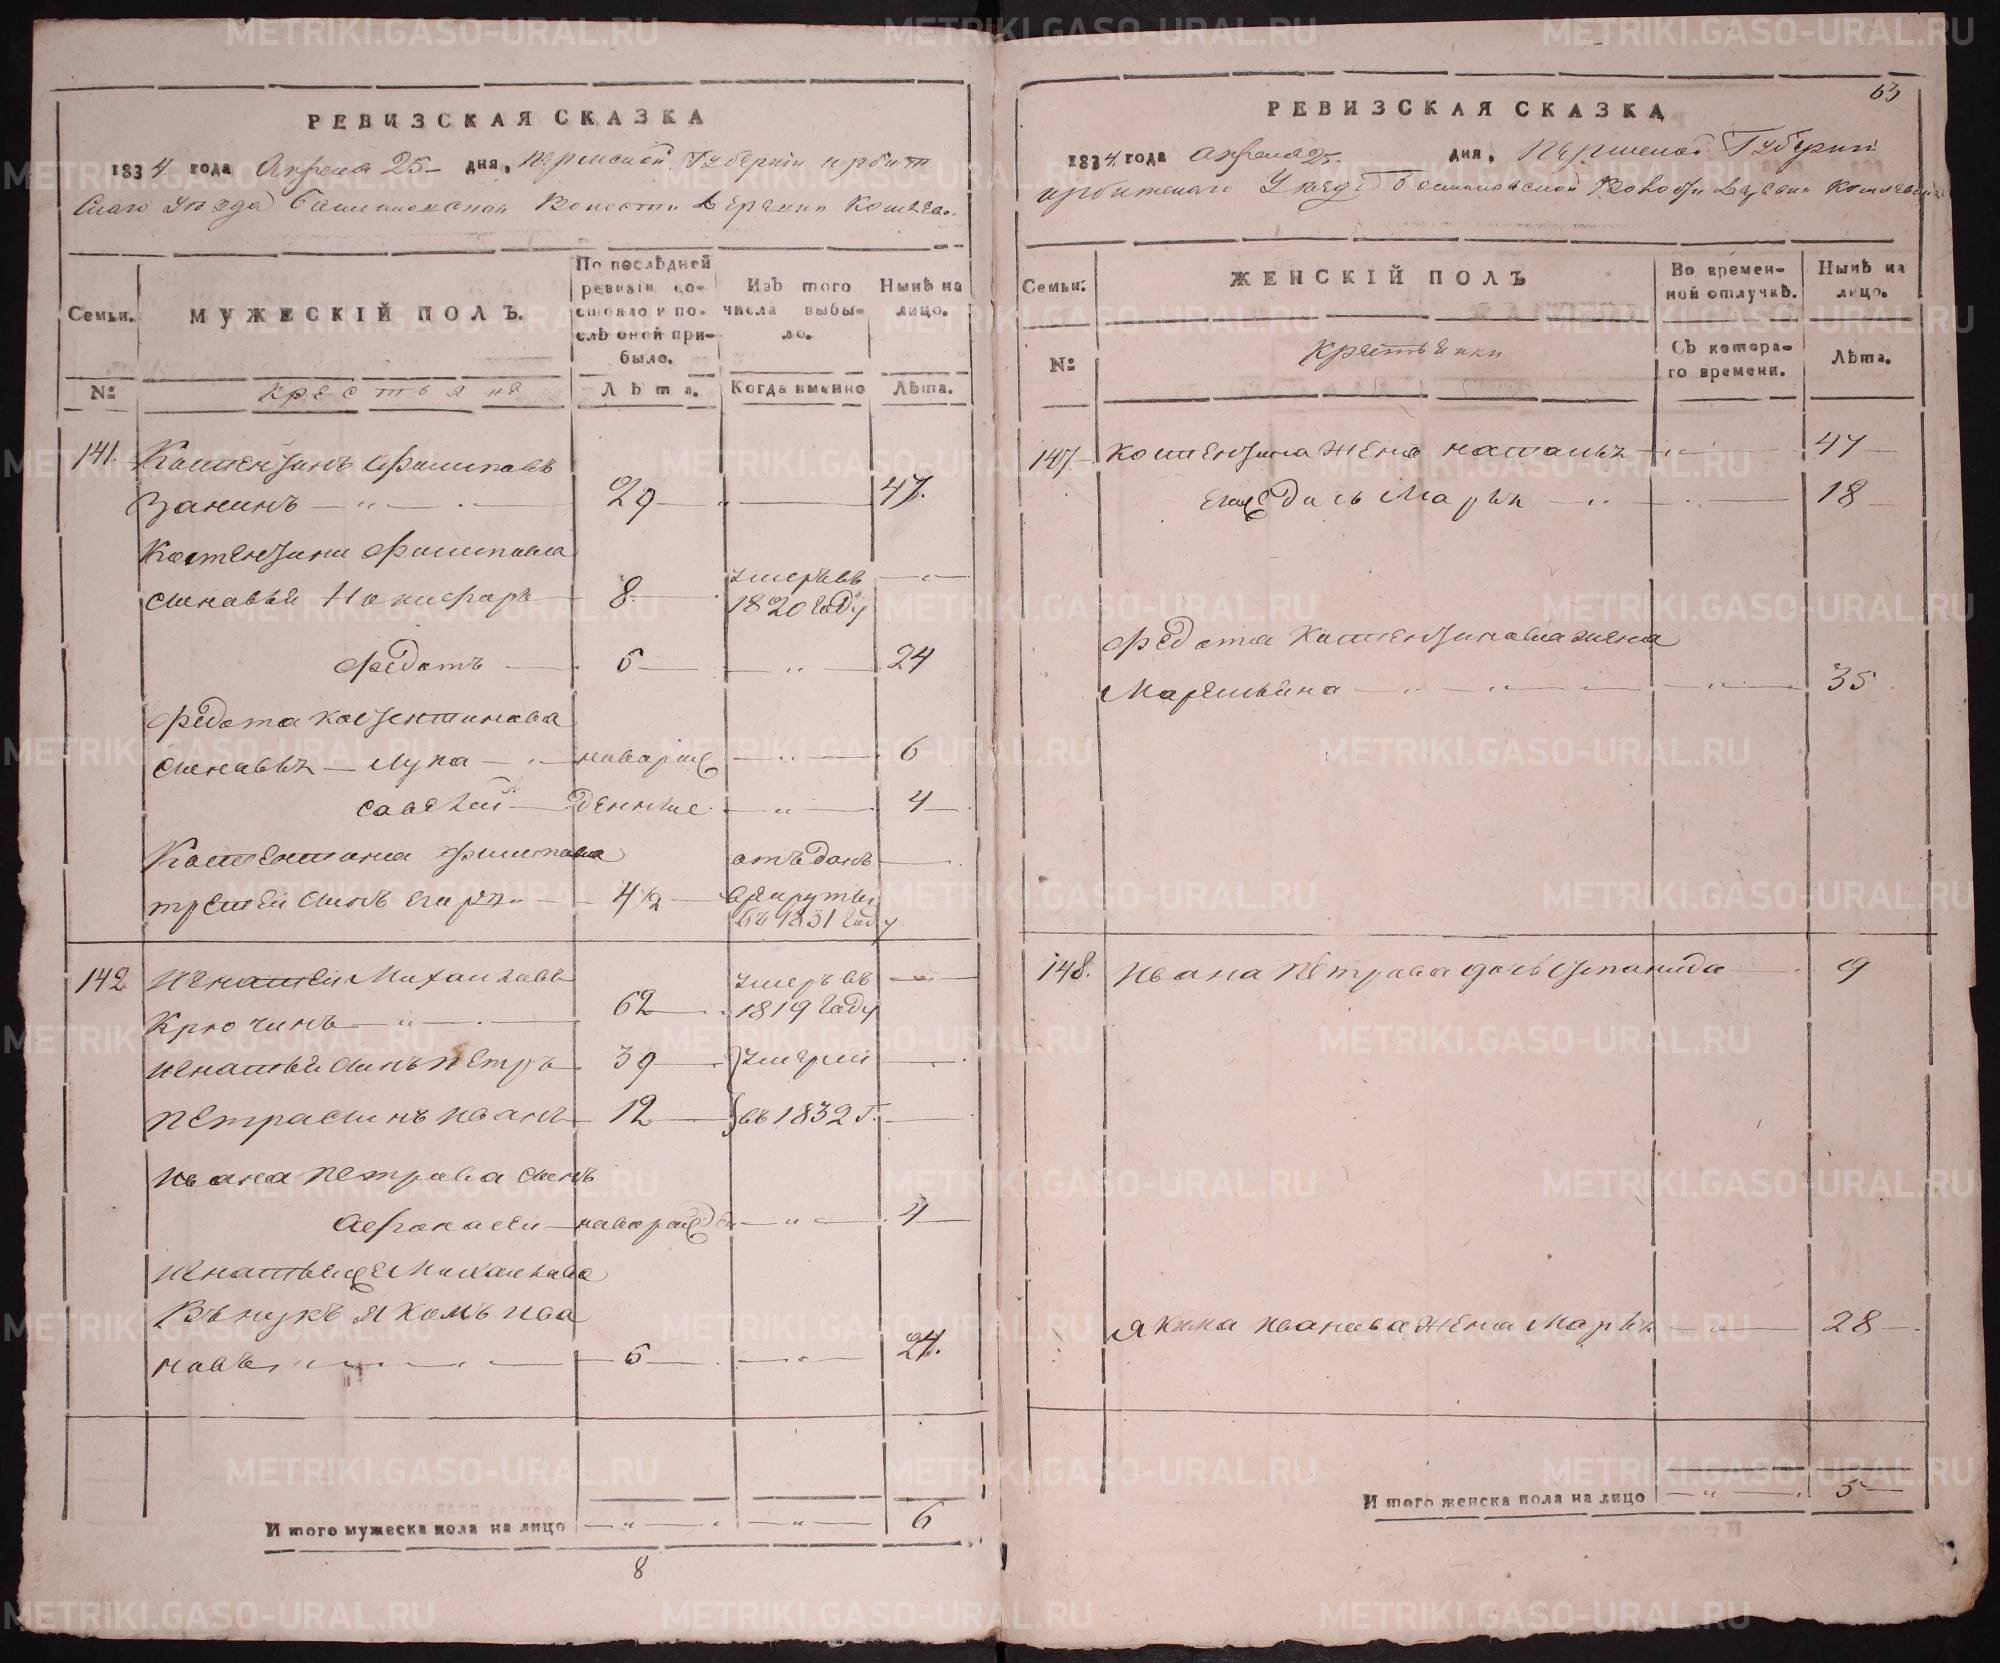 РЕВИЗСКАЯ СКАЗКА
1834 года Апреля 25 дня, Пермской Губернии ирбит
скаго уѣзда волости деревни
Семьи.
МУЖЕСКІЙ ПОЛЪ.
По послѣдней
ревизіи со-
стояло и по-
слѣ оной при-
было.
Изъ того
числа выбы-
ло.
Нынѣ на
лицо.
№
крестьяне
Лѣта.
Когда именно
Лѣта.
141. Костентинъ Филиповъ
Занинъ 29 47.
Костентина Филипова
умеръ въ
сыновьи Никифоръ 8 1820 году
Федотъ 6 24
Федота Костентинова
сыновья Лука новорож 6
Савелей денные 4
Костентина Филипова отъдонъ
третей сынъ Егоръ 4½ врекруты
въ 1831 году
142 Игнатей Михаиловъ умеръ въ
Крючинъ 62 1819 году
Игнатьи сынъ Петръ 39 умерли
Петра сынъ Иванъ 12 въ 1832 г.
Ивана Петрова сынъ
Афонасеи новорожден 4
Игнатья же Михаилова
Вънукъ Якимъ Ива
новъ 6 24.
И того мужеска пола на лицо 6
8
63
РЕВИЗСКАЯ СКАЗКА
1834 года апреля 25 дня, Пермской Губернии
ирбитскаго Уѣзда волости деревни
Семьи.
ЖЕНСКІЙ ПОЛЪ
Во времен-
ной отлучкѣ.
Нынѣ на
лицо.
№
крестьянки
Съ котора-
го времени.
Лѣта.
147 Костентина жена Наталья 47
ево дочь Марья 18
Федота Костентинова жена
Маремьяна 35
148. Ивана Петрова дочь Степанида 9
Якима Иванова жена Марья 28
И того женска пола на лицо 5
METRIKI.GASO-URAL.RU